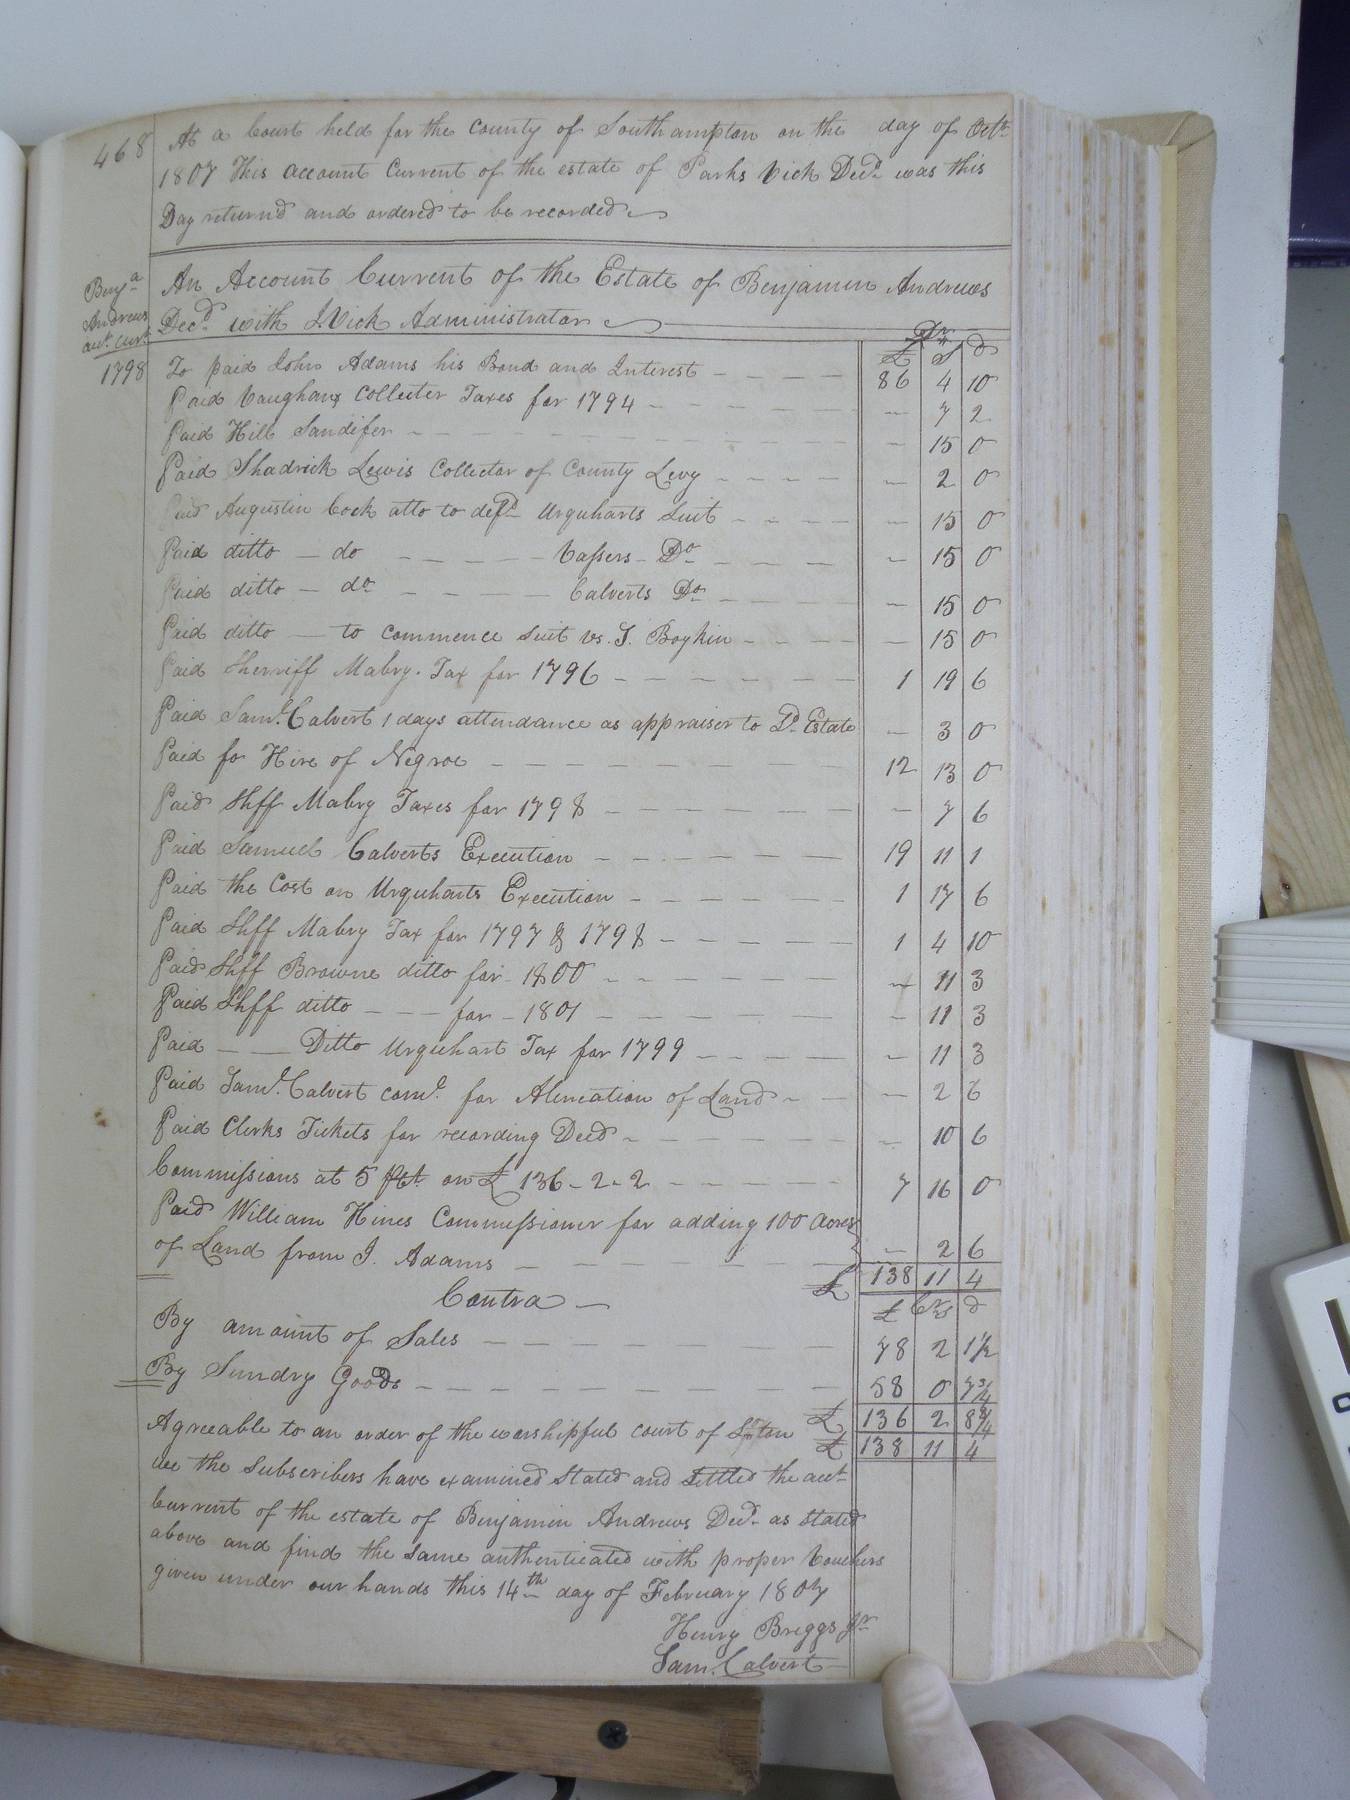 468
At a Court held for the County of Southampton on the day of Octr
1807 This account Current of the estate of Parks Vick Decd. was this
Day returnd and ordered to be recorded
Benja
Andrews
act. Curt.
An Account Current of the Estate of Benjamin Andrews
Decd. with J. Vick Administrator
Dr
£ S d
1798 To paid John Adams his Bond and Interest 86 4 10
Paid Vaughan Collecter Taxes for 1794 - 7 2
Paid Hill Sandifer - 15 0
Paid Shadrick Lewis Collector of County Levy - 2 0
Paid Augustin Cock atto to defd. Urquharts Suit - 15 0
Paid ditto - do Vassers - Do - 15 0
Paid ditto - do Calverts Do - 15 0
Paid ditto - to commence Suit vs. J. Boykin - 15 0
Paid Sherriff Mabry. Tax for 1796 1 19 6
Paid Saml. Calvert 1 days attendance as appraiser to Dd. Estate - 3 0
Paid for Hire of Negroe 12 13 0
Paid Shff Mabry Taxes for 1798 - 7 6
Paid Samuel Calverts Execution 19 11 1
Paid the Cost on Urquharts Execution 1 17 6
Paid Shff Mabry Tax for 1797 & 1798 1 4 10
Paid Shff Browne ditto for - 1800 - 11 3
Paid Shff ditto - - - for - 1801 - 11 3
Paid - - Ditto Urquhart Tax for 1799 - 11 3
Paid Saml. Calvert comr. for Alineation of Land - 2 6
Paid Clerks Tickets for recording Deed - 10 6
Commissions at 5 PCt. on £ 136 - 2 - 2 7 16 0
Paid William Hines Commissioner for adding 100 Acres
of Land from J. Adams - 2 6
£ 138 11 4
Contra
£ Crs d
By amount of Sales 78 2 1 1/2
By Sundry Goods 58 0 7 3/4
£ 136 2 8 3/4
£ 138 11 4
Agreeable to an order of the worshipful court of Sºton
we the Subscribers have examined Stated and Settled the act
Current of the estate of Benjamin Andrews Decd. as Stated
above and find the same authenticated with proper Vouchers
given under our hands this 14th day of February 1807
Henry Briggs Jr
Sam. Calvert